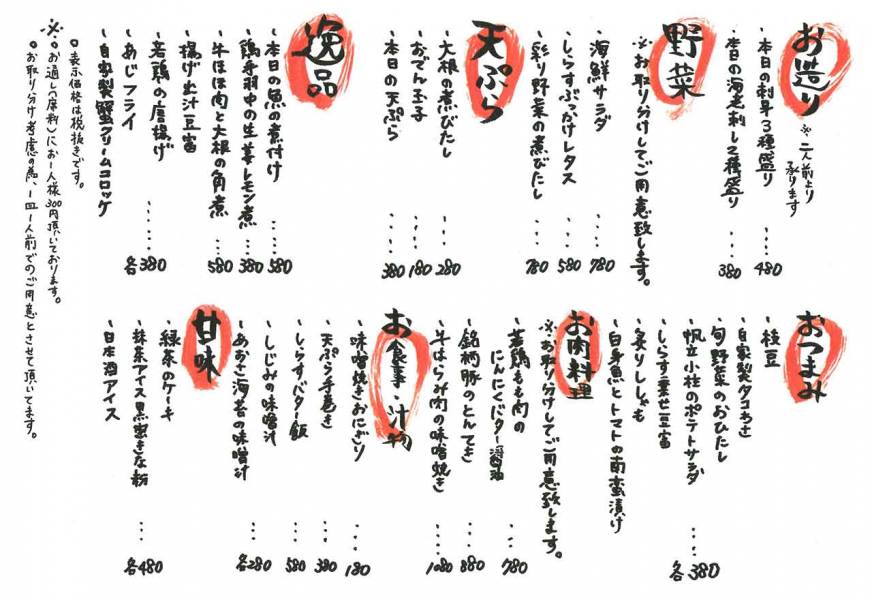 お造り
※二人前より
承ります
・本日の刺身3種盛り……480
・本日の海老刺し2種盛り……380
野菜
※お取り分けしてご用意致します。
・海鮮サラダ……780
・しらすぶっかけレタス……580
・彩り野菜の煮びたし……780
天ぷら
・大根の煮びたし……280
・おでん玉子……180
・本日の天ぷら……380
逸品
・本日の魚の煮付け……580
・鶏手羽中の生姜レモン煮……380
・牛ほほ肉と大根の角煮……580
・揚げ出汁豆富
・若鶏の唐揚げ
・あじフライ
・自家製蟹クリームコロッケ
……各380
。表示価格は税抜きです。
※。お通し(席料)にお一人様300円頂いております。
。お取り分け考慮の為、一皿一人前でのご用意とさせて頂いてます。
おつまみ
・枝豆
・自家製タコわさ
・旬野菜のおひたし
・帆立小柱のポテトサラダ
・しらす乗せ豆富
・炙りししゃも
・白身魚とトマトの南蛮漬け
……各380
お肉料理
※お取り分けしてご用意致します。
・若鶏もも肉の
にんにくバター醤油……780
・銘柄豚のとんてき……880
・牛はらみ肉の味噌焼き……1080
お食事・汁物
・味噌焼きおにぎり……180
・天ぷら手巻き……380
・しらすバター飯……580
・しじみの味噌汁
・あおさ海苔の味噌汁
……各280
甘味
・緑茶のケーキ
・抹茶アイス黒蜜きな粉
・日本酒アイス
……各480